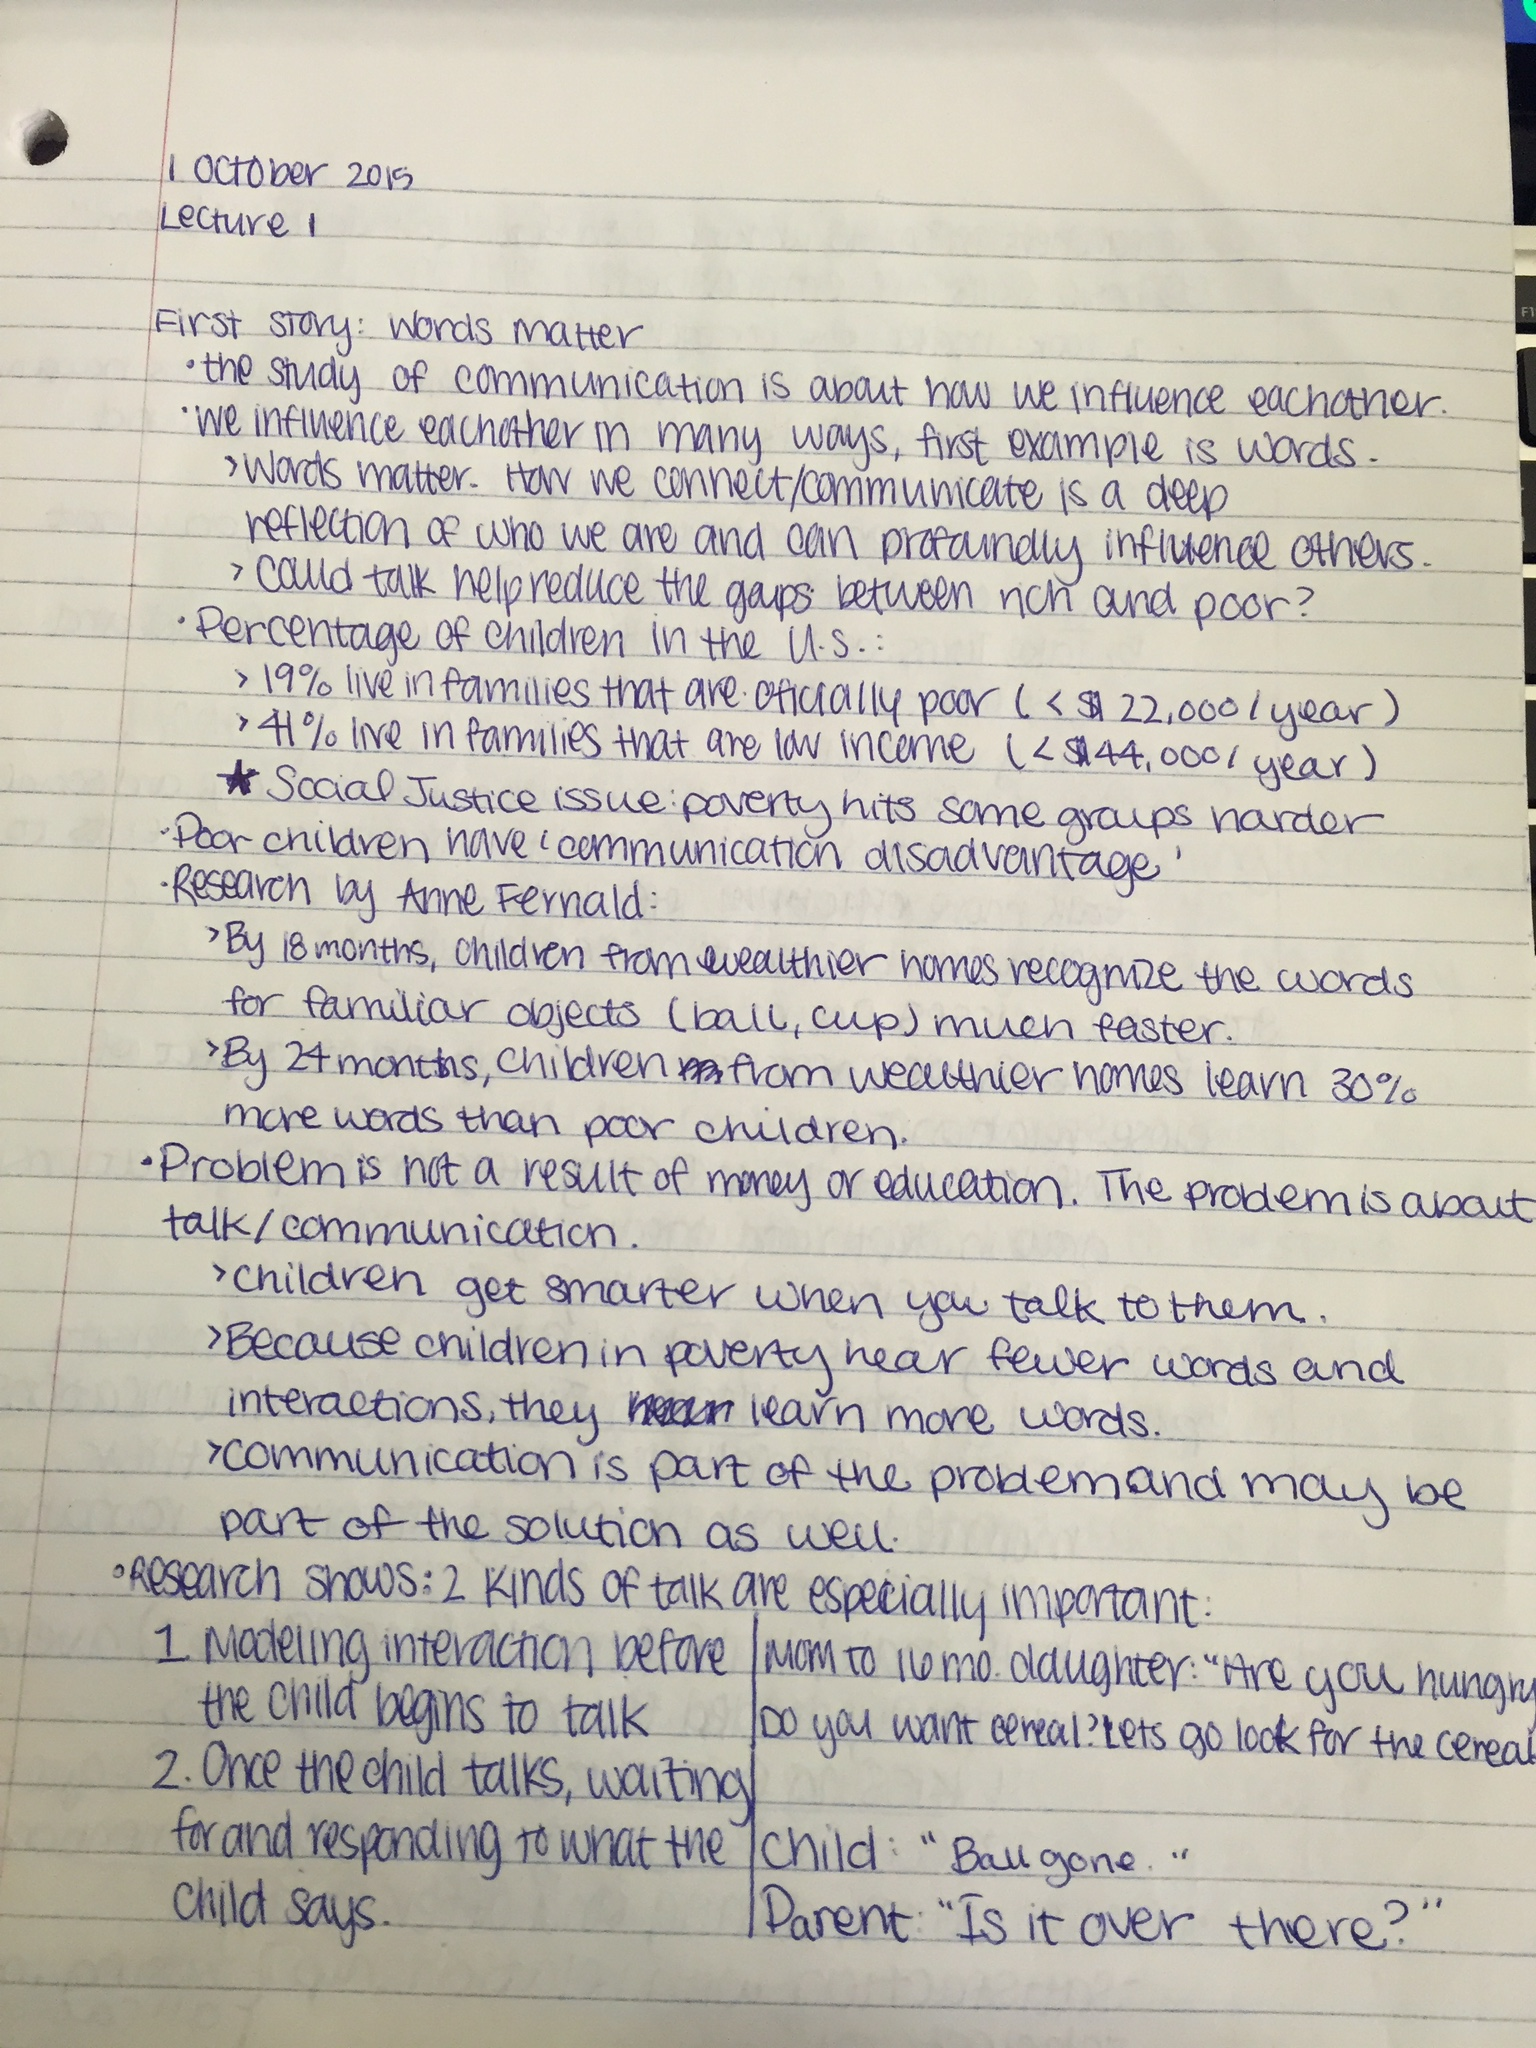 1 October 2015
Lecture 1
First story: Words matter
• the study of communication is about how we influence eachother.
• we influence eachother in many ways, first example is words.
> Words matter. How we connect/communicate is a deep
reflection of who we are and can profoundly influence others.
> Could talk help reduce the gaps between rich and poor?
• Percentage of children in the U.S.:
> 19% live in families that are oficially poor (< $22,000/year)
> 41% live in families that are low income (< $44,000/year)
★ Social Justice issue: poverty hits some groups harder
• Poor children have 'communication disadvantage'
• Research by Anne Fernald:
> By 18 months, children from wealthier homes recognize the words
for familiar objects (ball, cup) much faster.
> By 24 months, children from wealthier homes learn 30%
more words than poor children.
• Problem is not a result of money or education. The problem is about
talk/communication.
> children get smarter when you talk to them.
> Because children in poverty hear fewer words and
interactions, they learn more words.
> communication is part of the problem and may be
part of the solution as well.
• Research shows: 2 kinds of talk are especially important:
1. Modeling interaction before
the child begins to talk
2. Once the child talks, waiting
for and responding to what the
child says.
Mom to 16 mo. daughter: "Are you hungry
Do you want cereal? Lets go look for the cereal
Child: "Ball gone."
Parent: "Is it over there?"